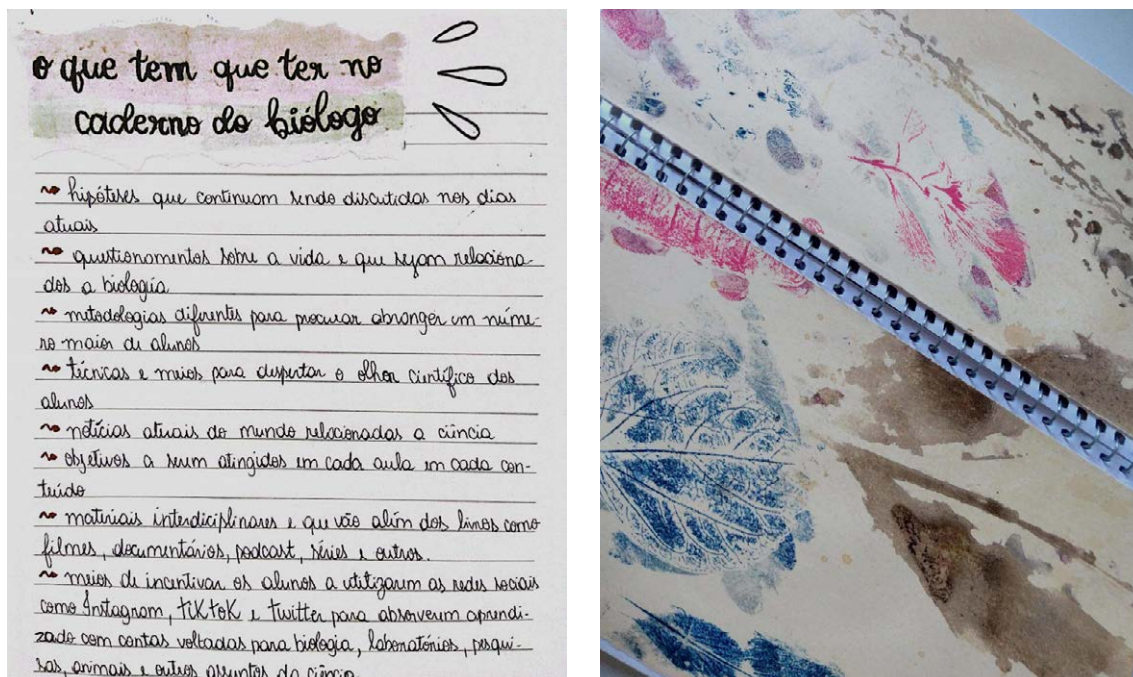 o que tem que ter no
caderno do biólogo
~ hipóteses que continuam sendo discutidas nos dias
atuais
~ questionamentos sobre a vida e que sejam relaciona-
dos a biologia
~ metodologias diferentes para procurar abranger um núme-
ro maior de alunos
~ técnicas e meios para despertar o olhar científico dos
alunos
~ notícias atuais do mundo relacionadas a ciência
~ objetivos a serem atingidos em cada aula em cada con-
teúdo
~ materiais interdiciplinares e que vão além dos livros como
filmes, documentários, podcast, séries e outros.
~ meios de incentivar os alunos a utitizarem as redes sociais
como Instagram, tiktok e twitter para absorverem aprendi-
zado com contas voltadas para biologia, laboratórios, pesqui-
sas, animais e outros assuntos da ciência